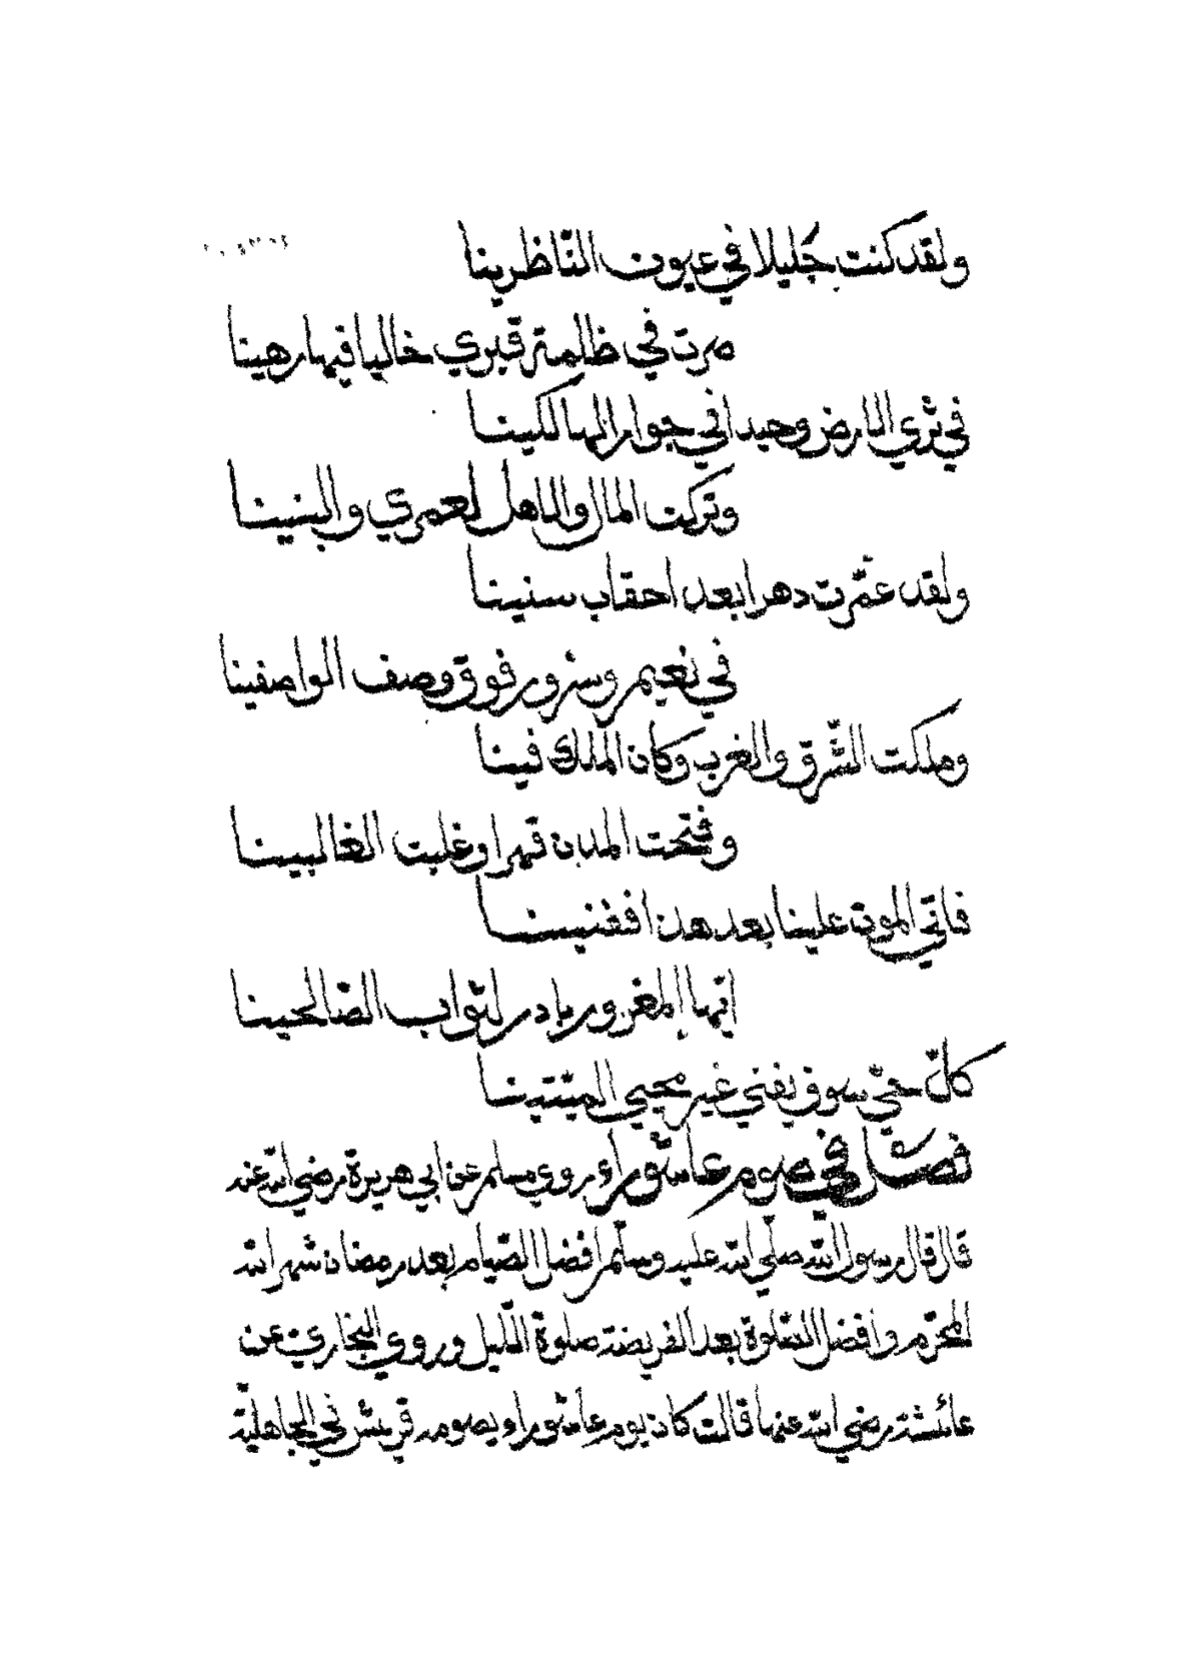 ولقد كنت جليلا في عيون الناظرينا
صرت في ظلمة قبري خاليا فيها رهينا
في ثري الارض وحيدا في جوار الهالكينا
وتركت المال والاهل لعمري والبنينا
ولقد عمّرت دهرا بعد احقاب سنينا
في نعيم وسرور فوق وصف الواصفينا
وملكت الشّرق والغرب وكان الملك فينا
وفتحت المدن قهرا وغلبت الغالبينا
فاتي الموت علينا بعد هذا ففنينا
ايّها المغرور بادر لثواب الصّالحينا
كلّ حيّ سوف يفني غير محيي الميّتينا
فصل في صوم عاشوراء روي مسلم عن ابي هريرة رضي الله عنه
قال قال رسول الله صلّي الله عليه وسلّم افضل الصّيام بعد رمضان شهر الله
المحرّم وافضل الصّلوة بعد الفريضة صلوة اللّيل وروي البخاري عن
عائشة رضي الله عنها قالت كان يوم عاشوراء يصومه قريش في الجاهليّة